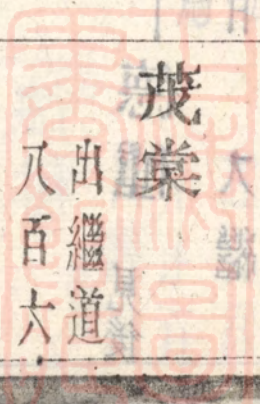 茂棠
出繼道
八百六